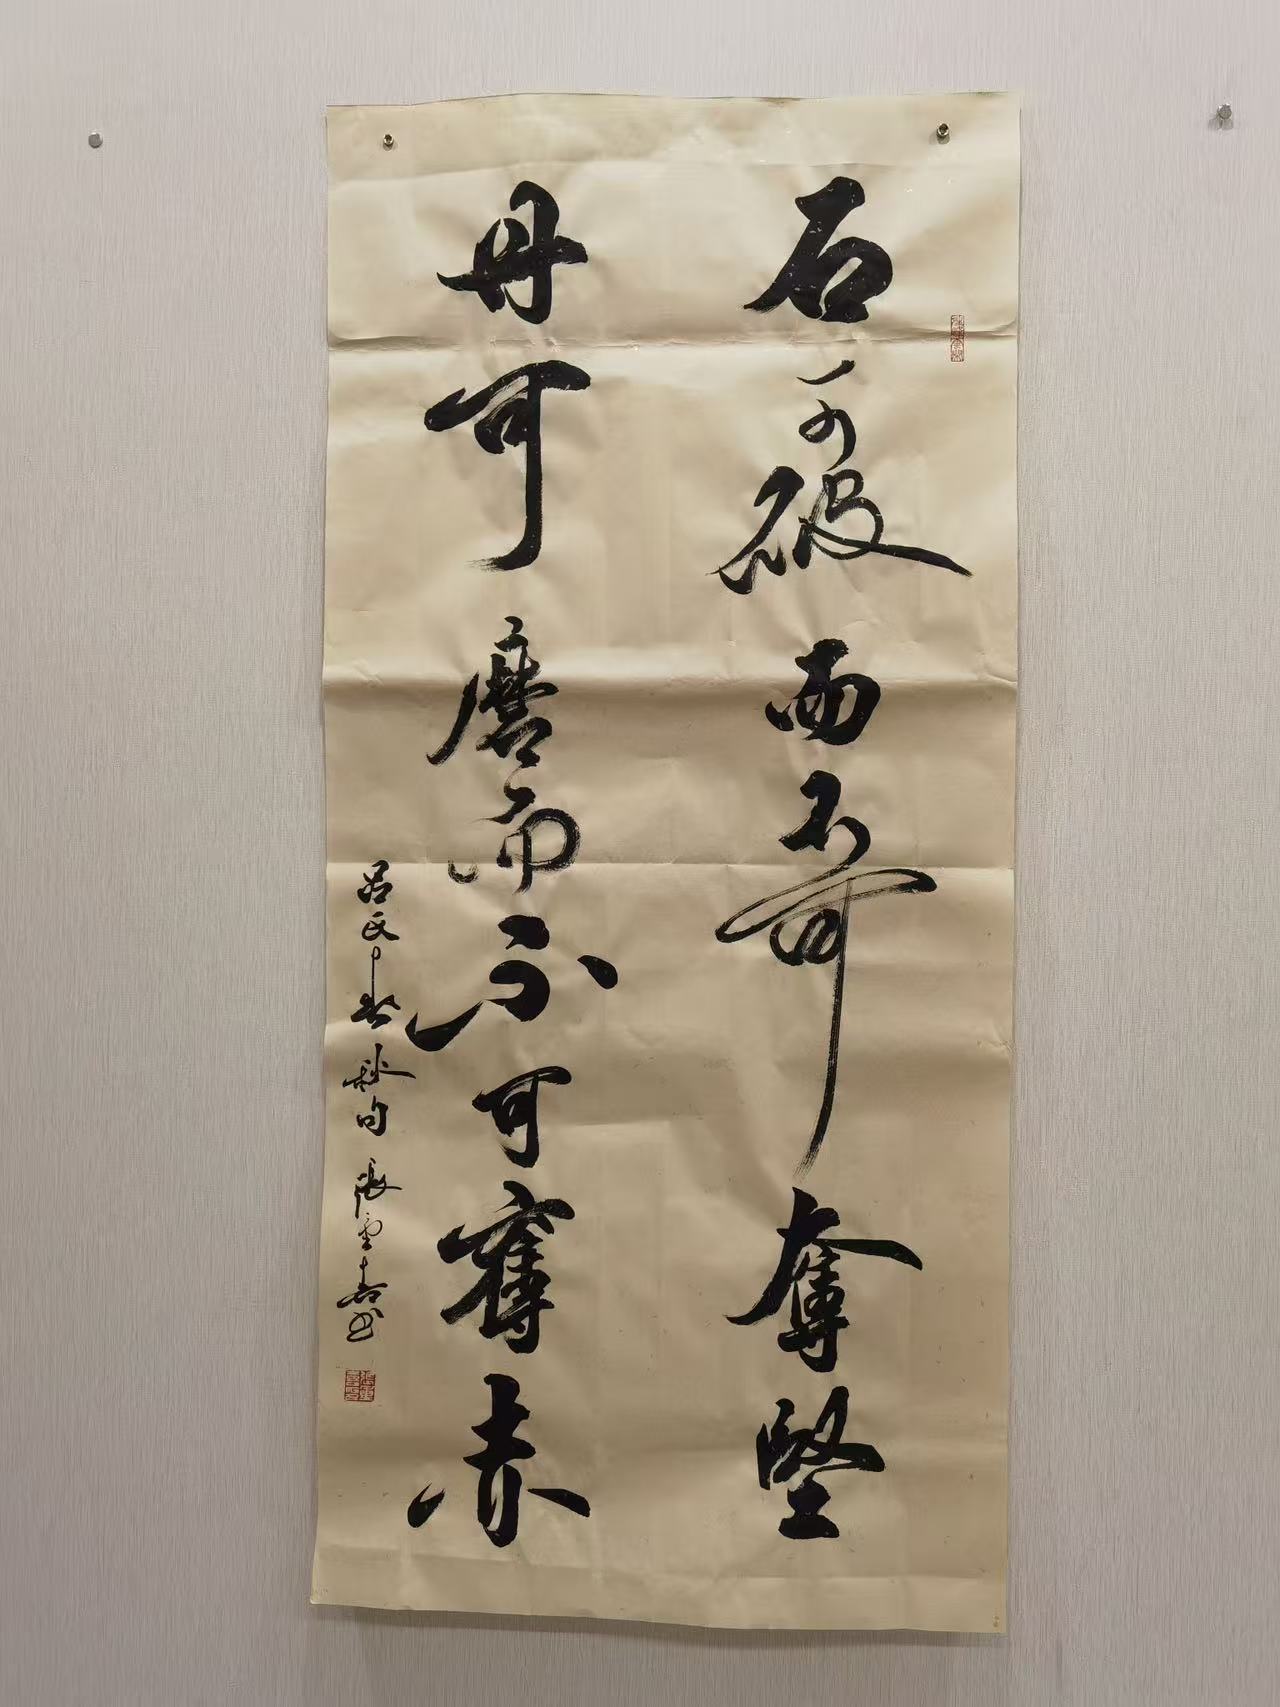 石可破而不可奪堅
丹可磨而不可奪赤
吕氏春秋句 張雲喜书